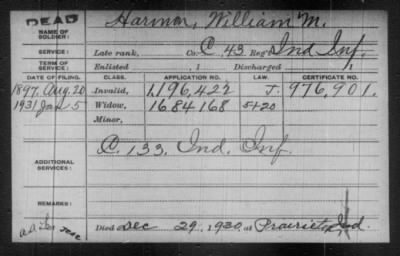 DEAD
NAME OF SOLDIER: Harmon, William M.
SERVICE: Late rank, Co. C, 43 Reg't Ind Inf.
TERM OF SERVICE: Enlisted , 1 Discharged , 1
DATE OF FILING. CLASS. APPLICATION NO. LAW. CERTIFICATE NO.
1897 Aug. 20 Invalid, 1,196,422 J. 976,901.
1931 Jan 5 Widow, 1684168 5+20
Minor,
ADDITIONAL SERVICES: C. 133. Ind. Inf.
REMARKS:
Died Dec 29, 1930, at Prairieton, Ind.